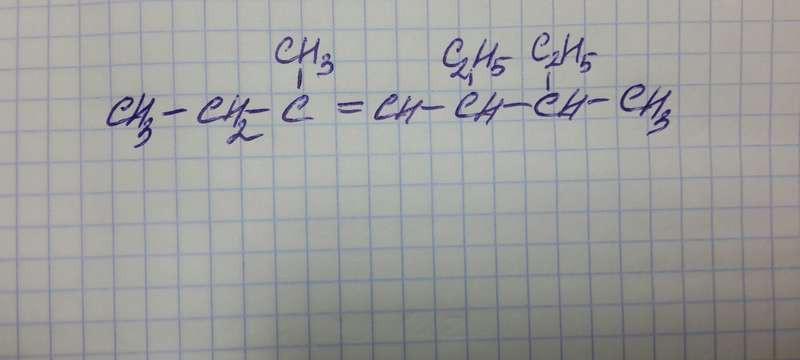 CH3 C2H5 C2H5
CH3 - CH2 - C = CH - CH - CH - CH3